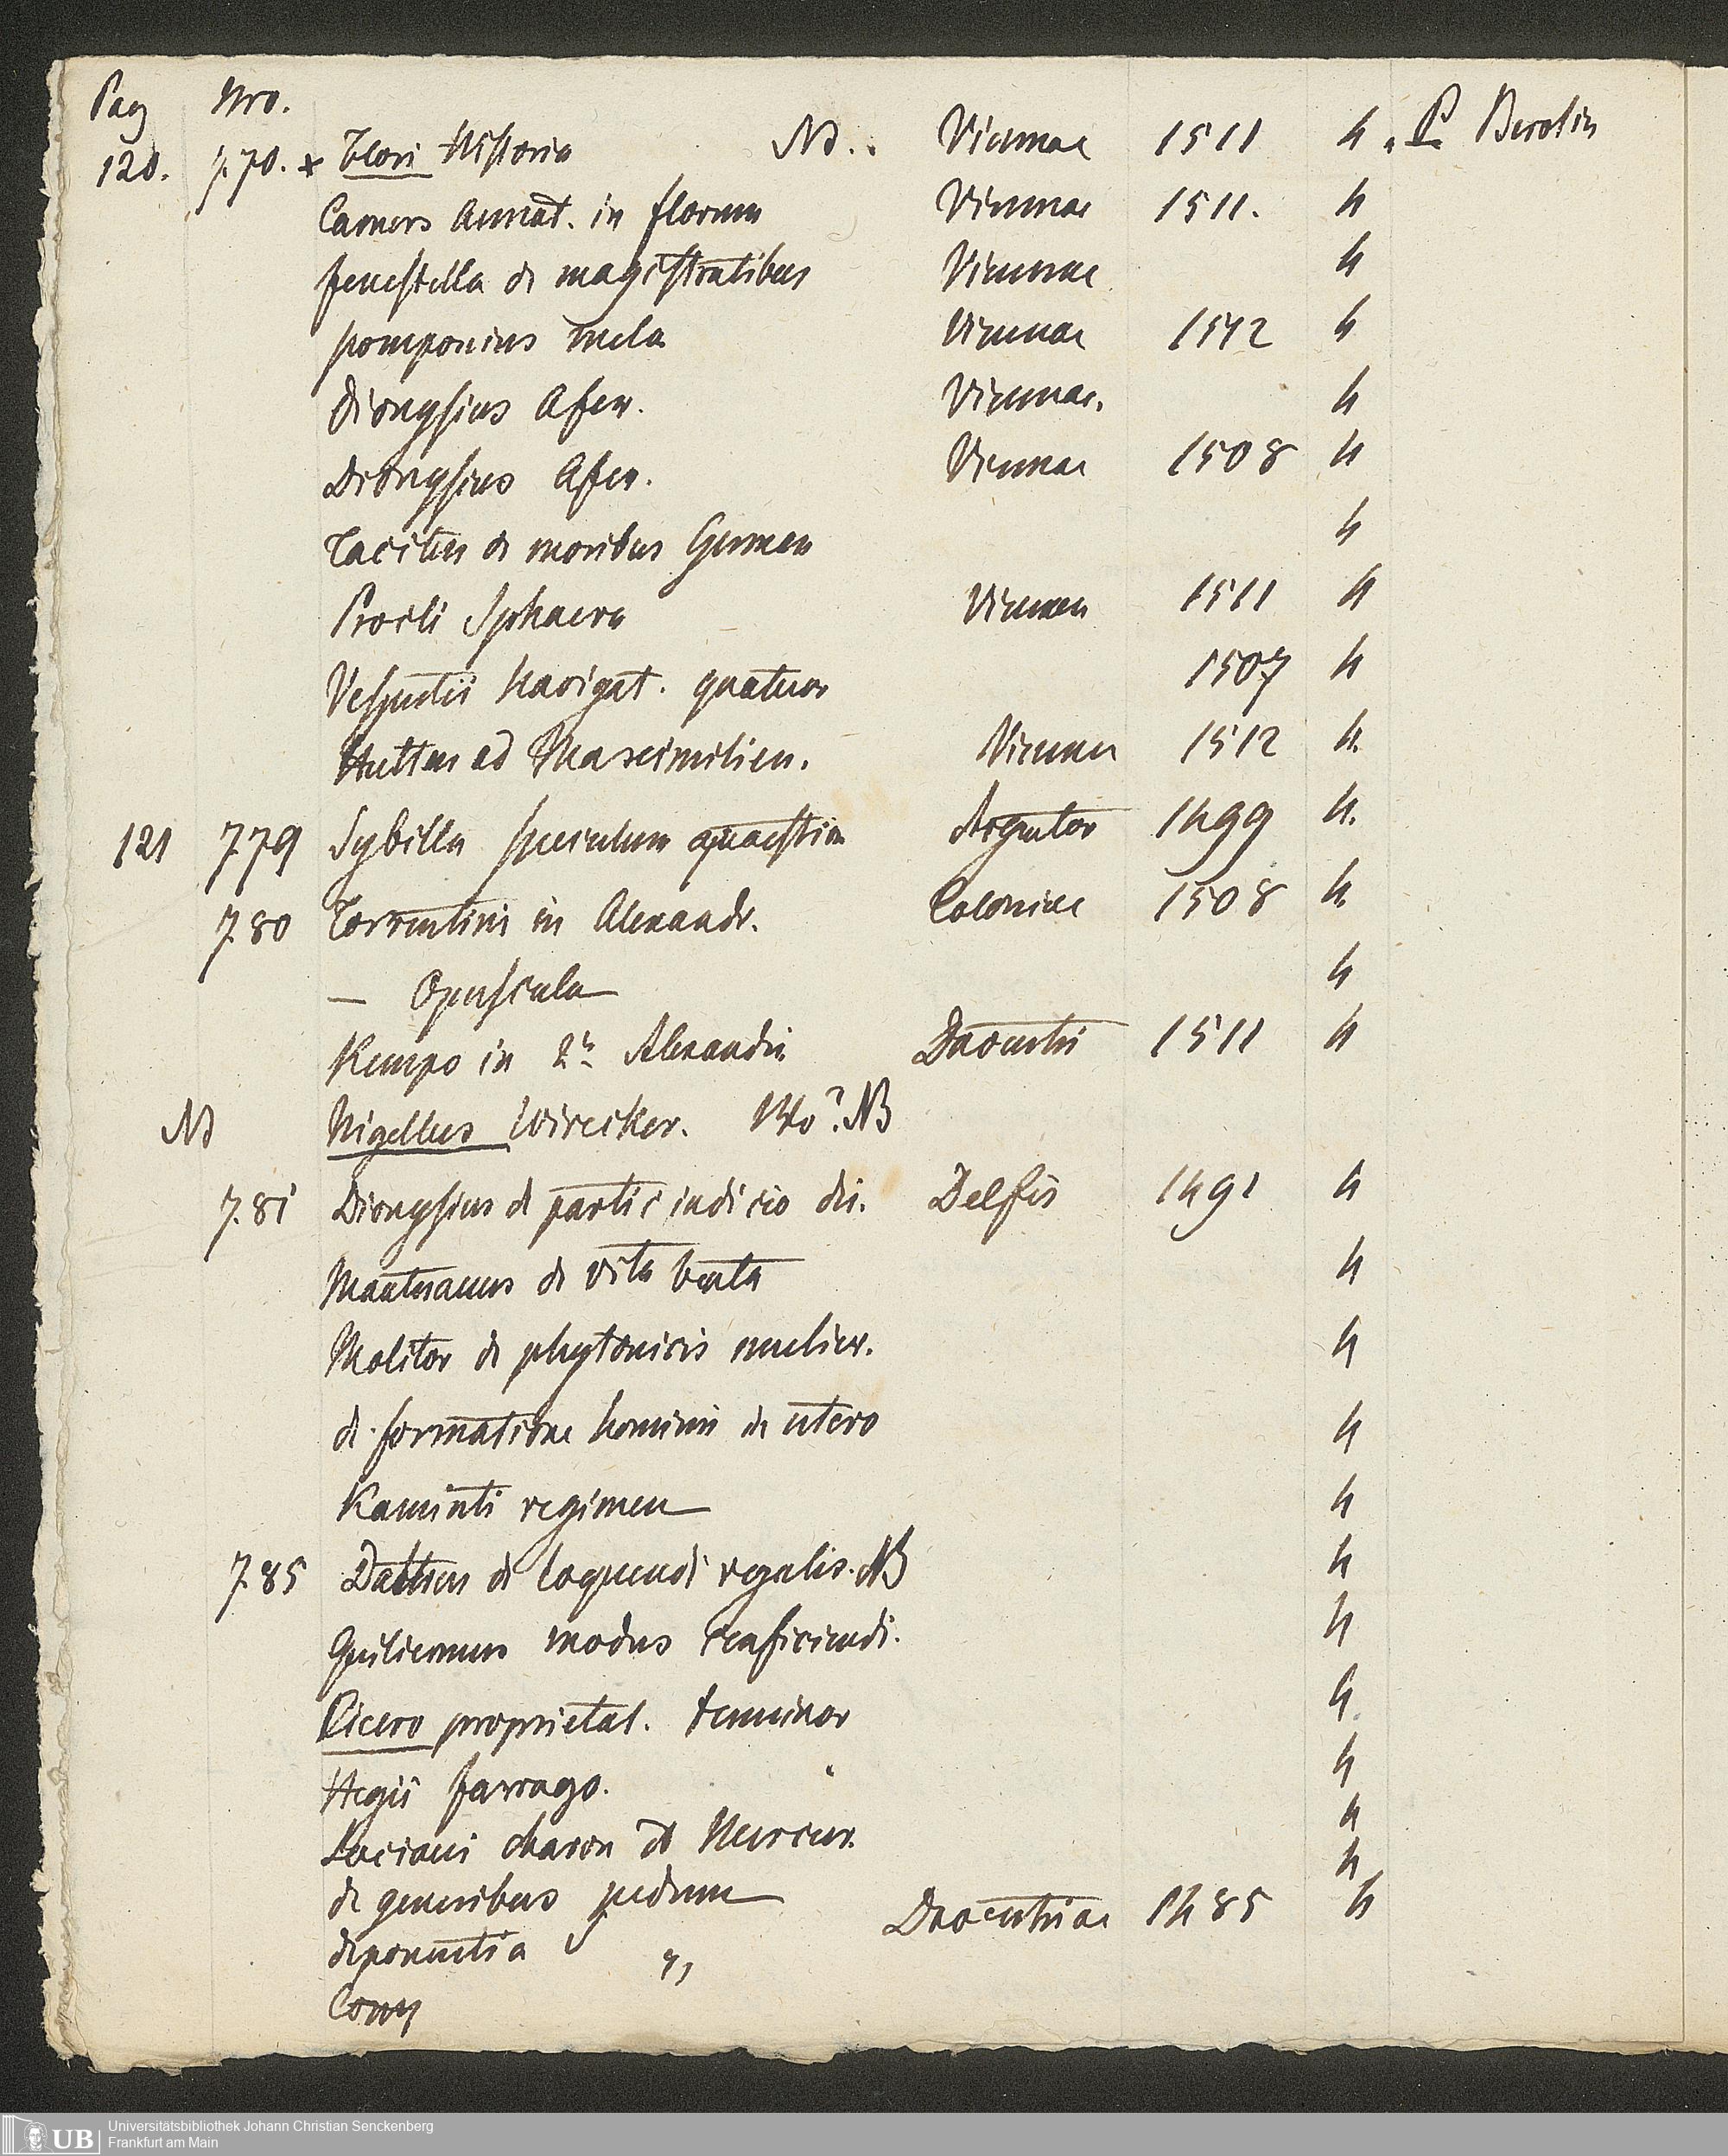 Pag Nro.
120. 770. x Flori Historia NB.. Viennae 1511 4. P. Berolin
Camers Annat. in florum Viennae 1511. 4
fenestella de magistratibus Viennae 4
pomponius mela Viennae 1512 4
Dionysius Afer. Viennae. 4
Dionysius Afer. Viennae 1508 4
Tacitus de moribus German 4
Procli Sphaera Viennae 1511 4
Vesputii Navigat. quatuor 1507 4
Hutten ad Maximilian. Viennae 1512 4.
121 779 Sybilla speculum quaestion Argentor 1499 4.
780 Torrentini in Alexandr. Coloniae 1508 4.
— Opuscula 4
Kempo in 2m Alexandri Daventri 1511 4
NB Nigellus Wireker. Wo? NB
781 Dionysius de partic iudicio dei. Delfis 1491 4
Mantuanus de vita beata 4
Molitor de phytonicis mulier. 4
de formatione hominis in utero 4
Kaminti regimen 4
785 Dattus de loquendi regulis. NB 4
Guliermus modus conficiendi. 4
Cicero proprietat. terminor 4
Hegii farrago. 4
Luciani charon et Mercur. 4
de generibus pedum 4
deponentia " Daventriae 1485 4